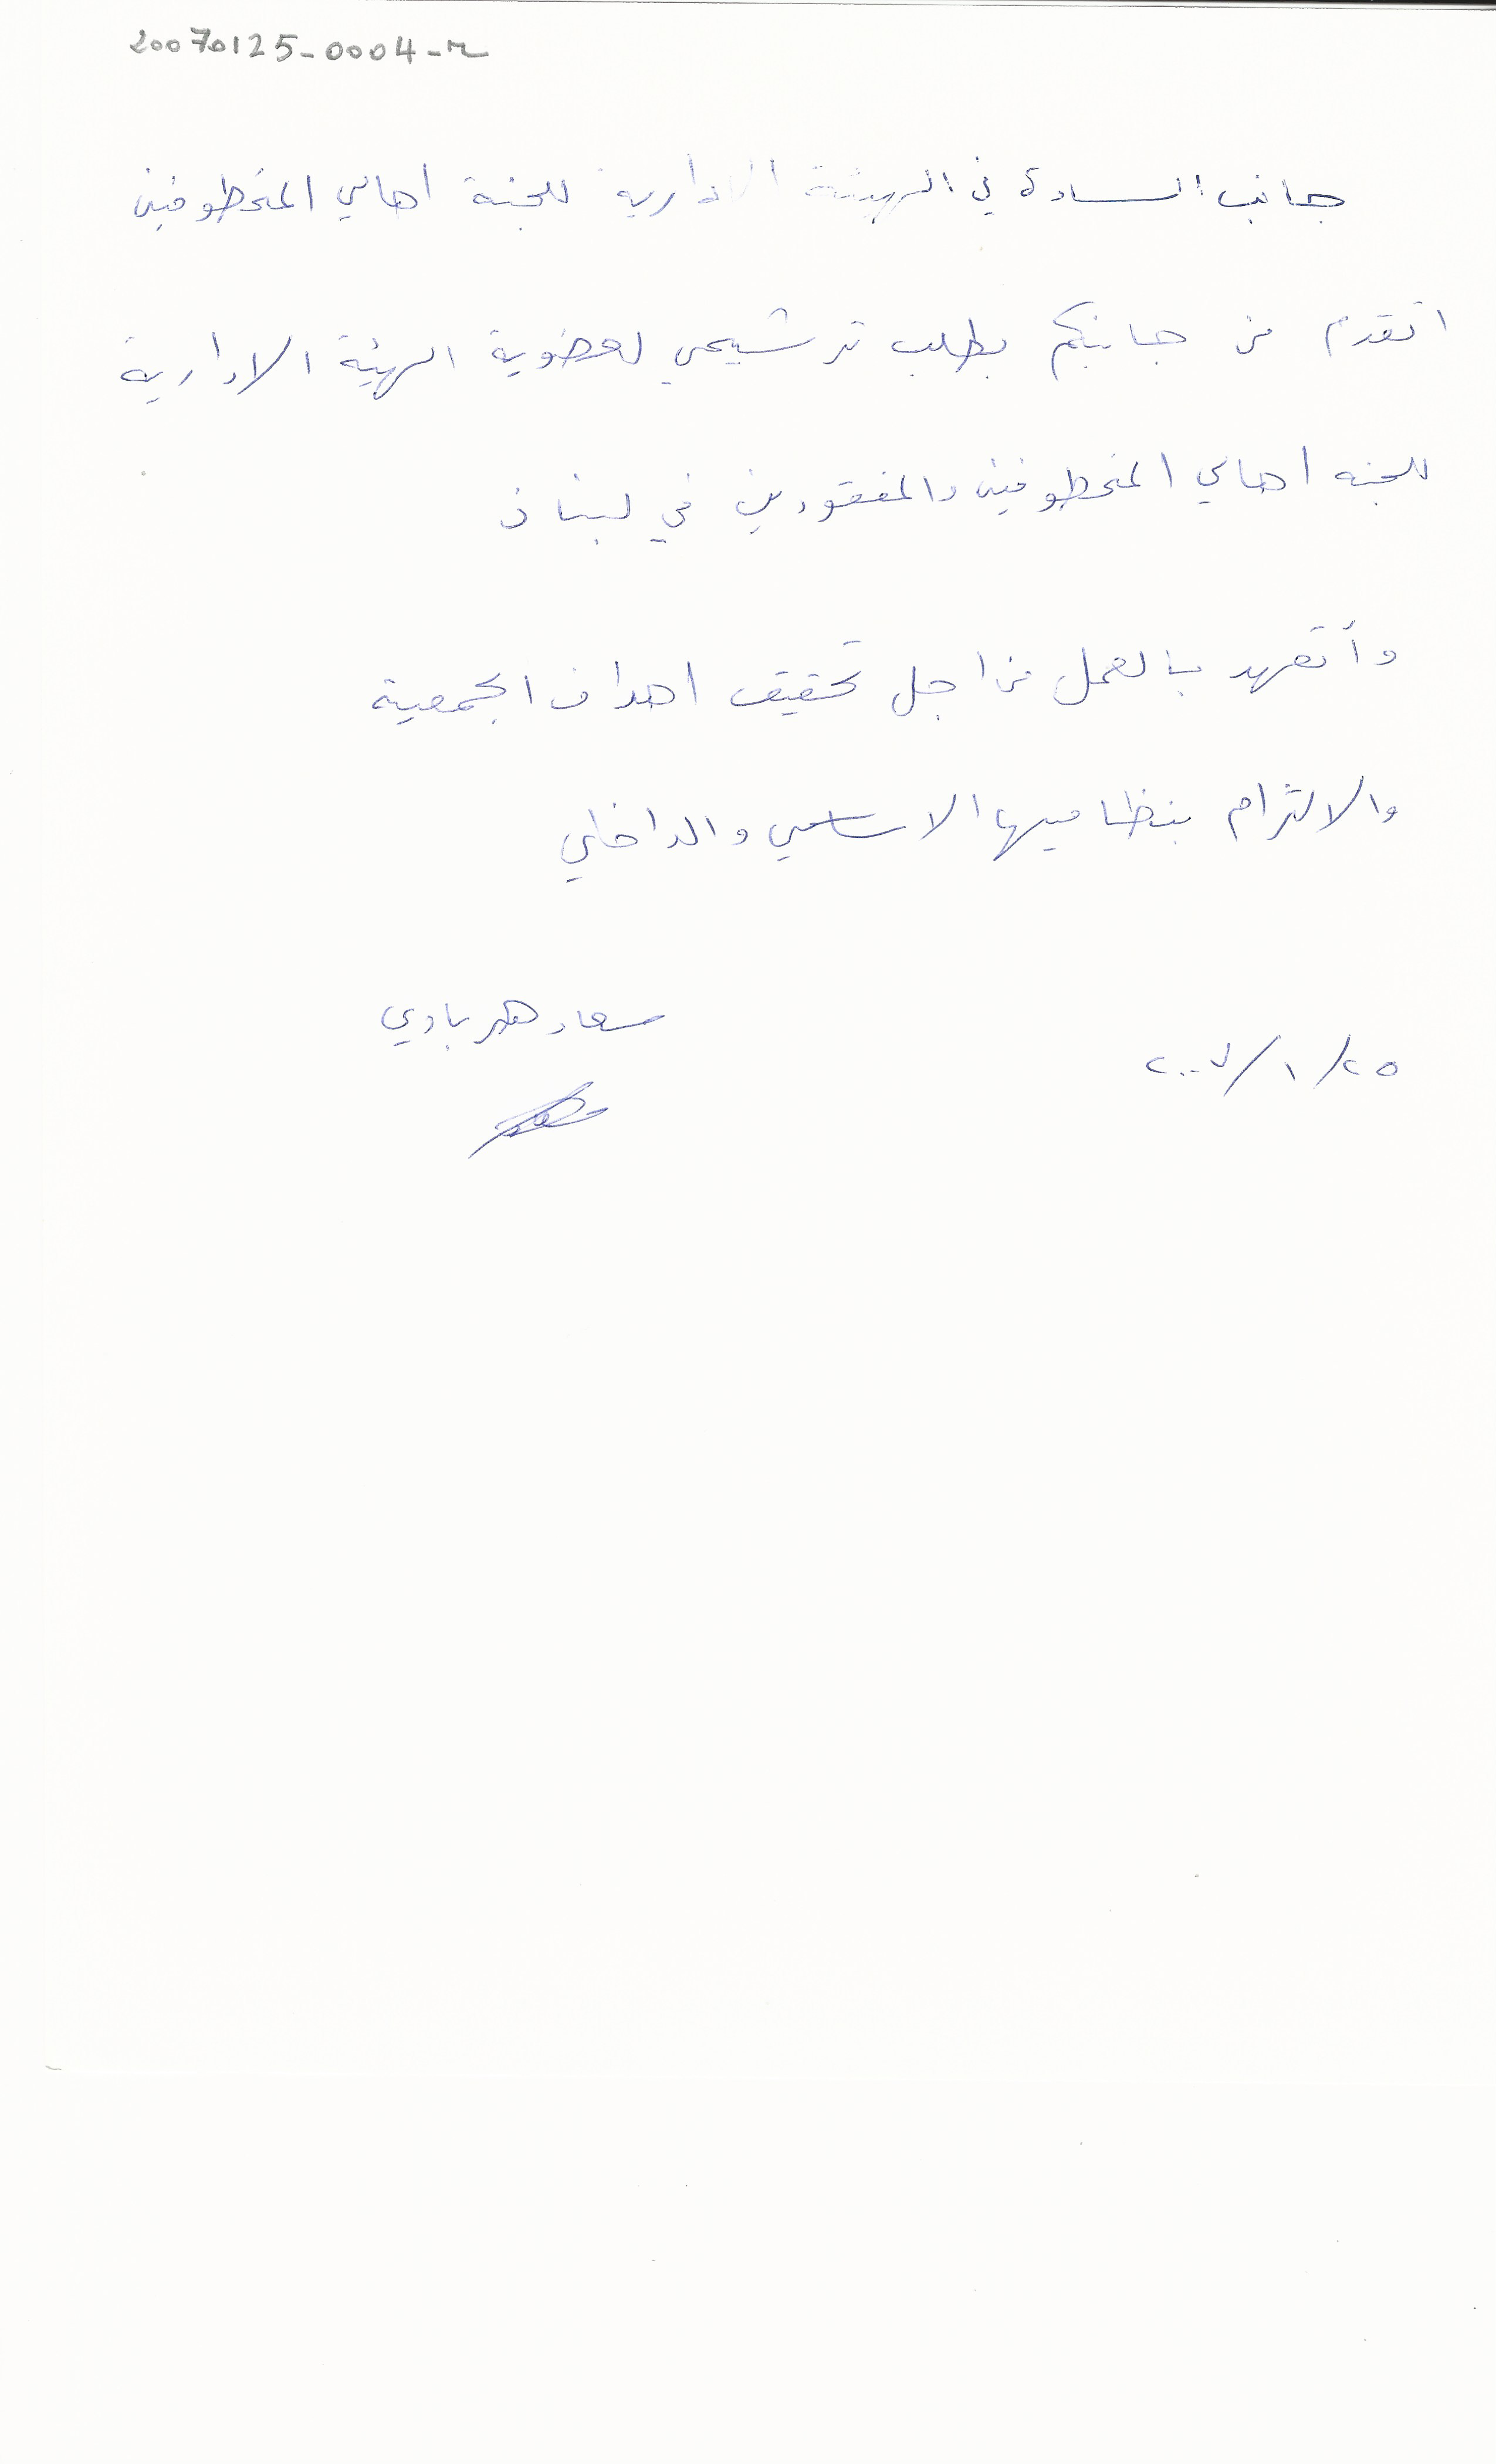 20070125-0004-r
جانب السادة في الهيئة الادارية للجنة اهالي المخطوفين
اتقدم من جانبكم بطلب ترشيحي لعضوية الهيئة الادارية
للجنه اهالي المخطوفين والمفقودين في لبنان
وأتعهد بالعمل من اجل تحقيق اهداف الجمعية
والالتزام بنظاميها الاساسي والداخلي
سعاد هرباوي
٢٥/١/٢٠٠٧